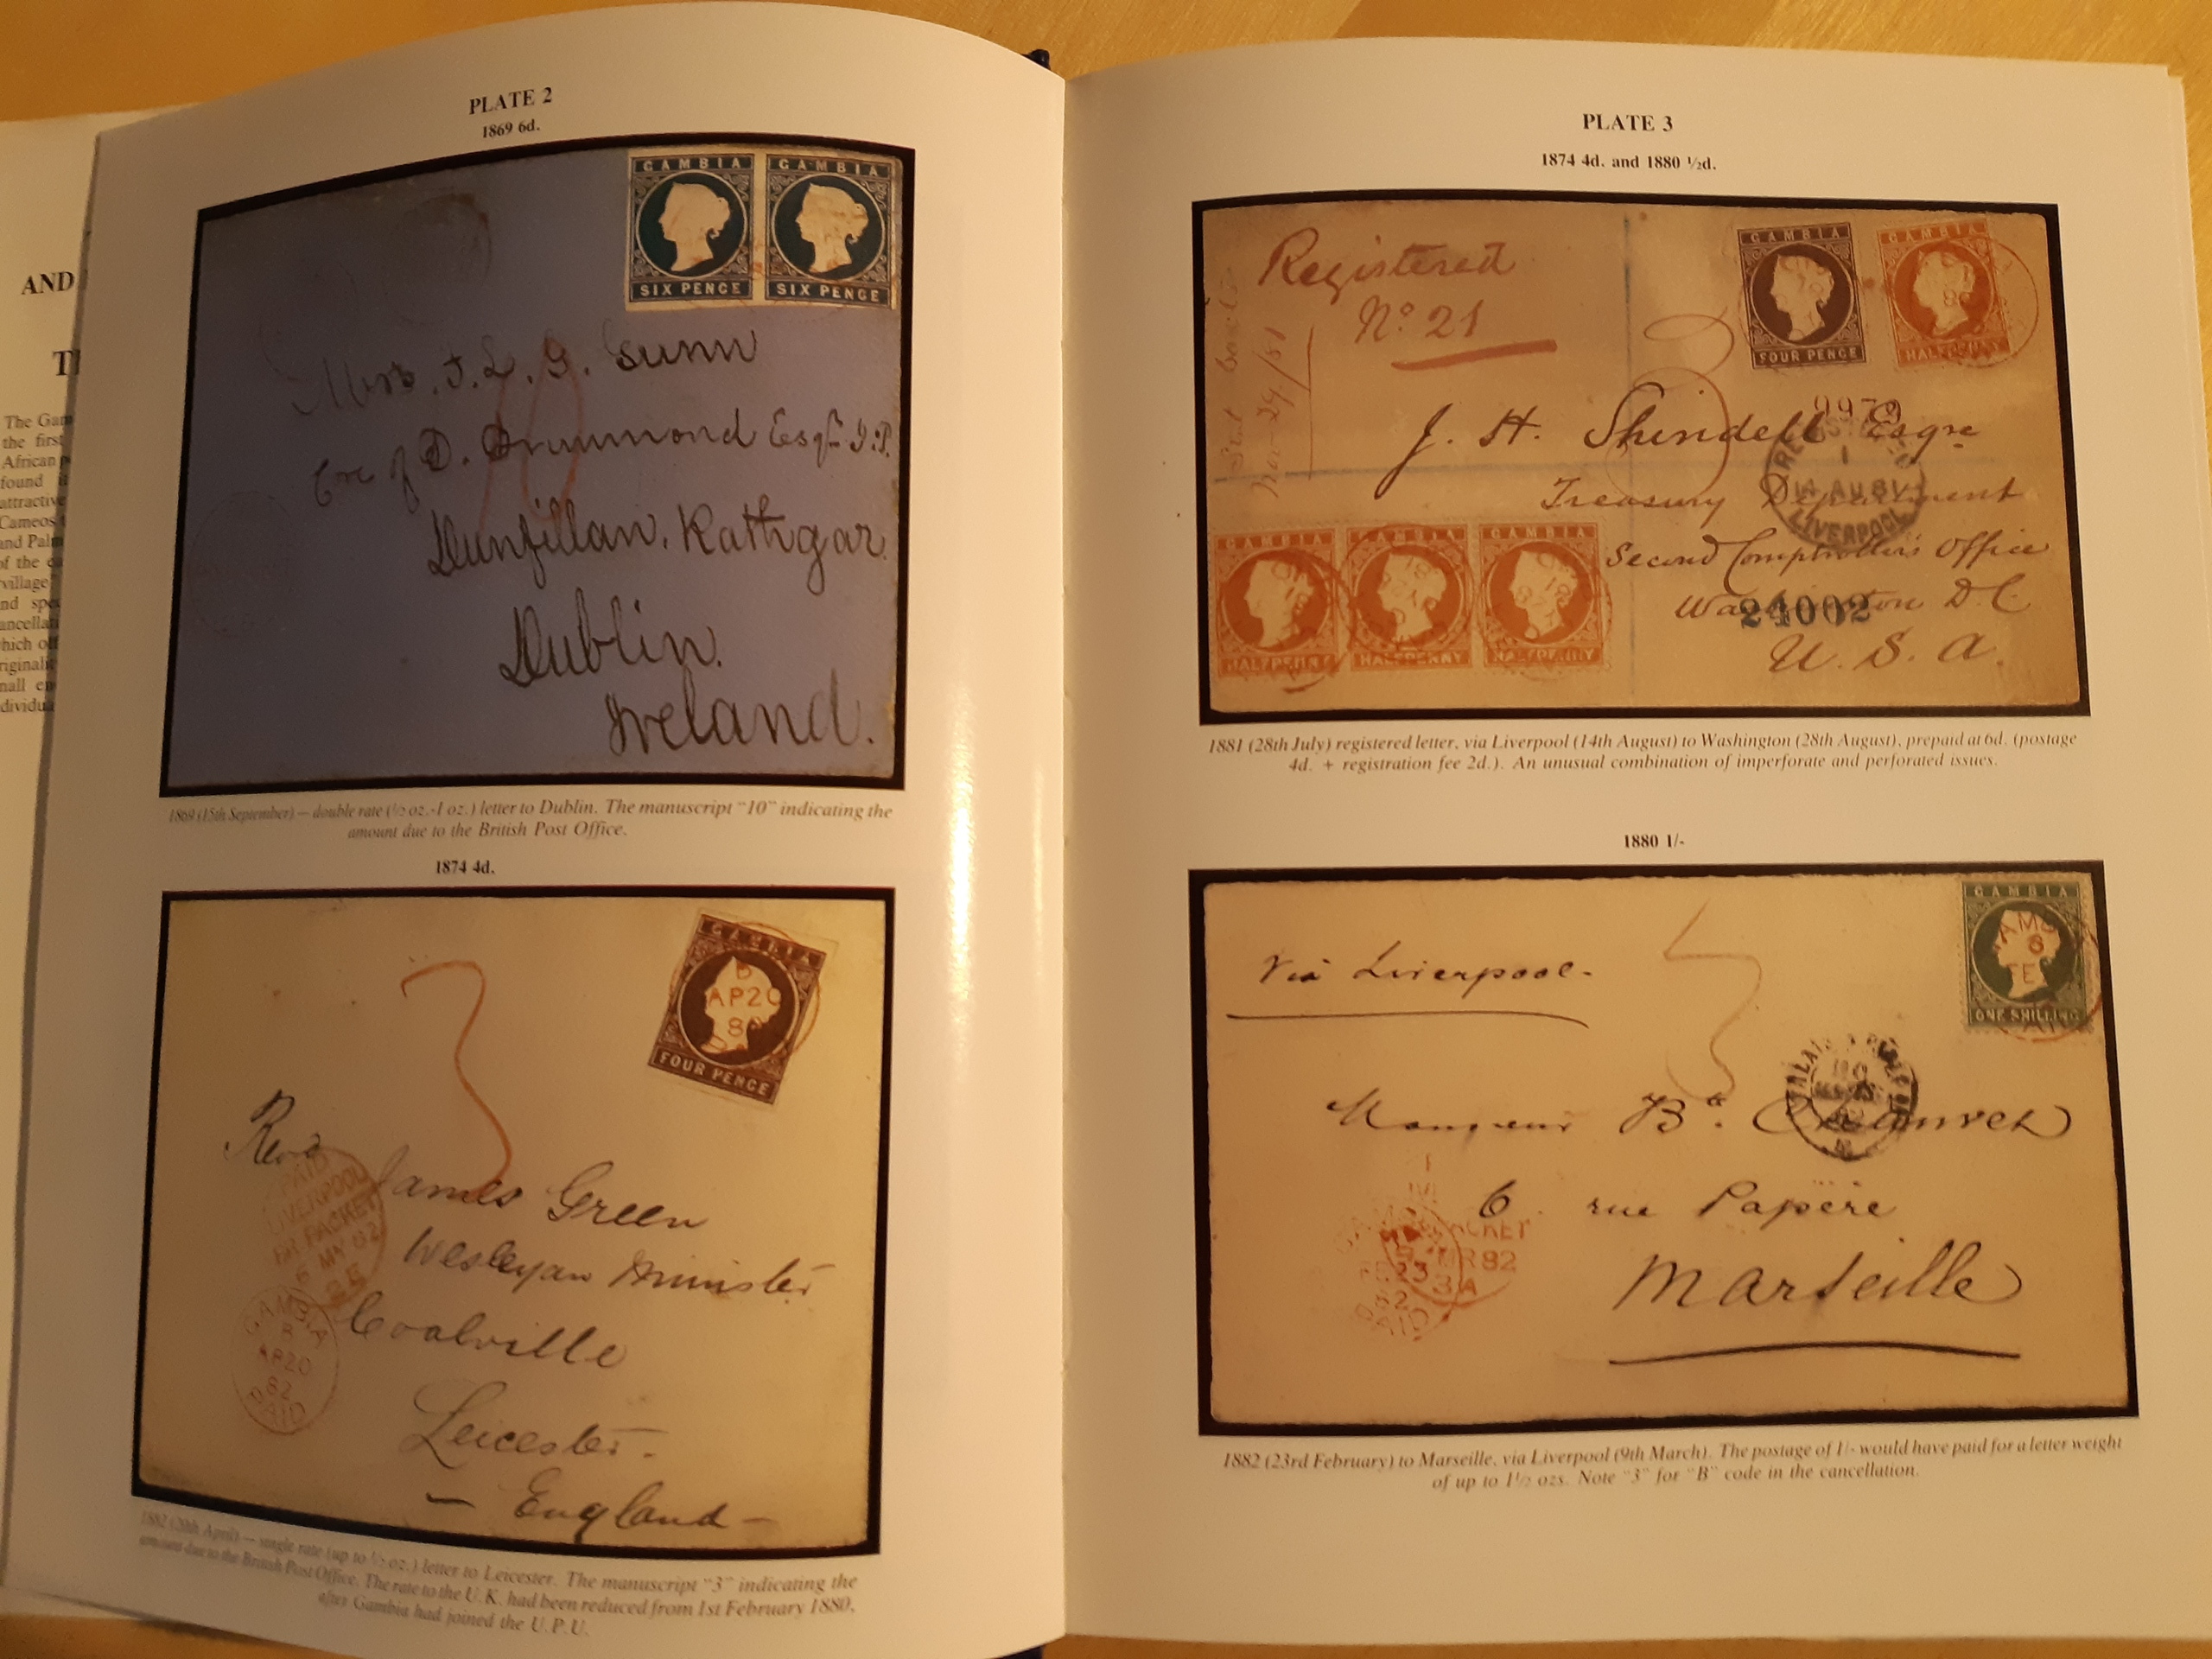 AND
The Gam
the first
African p
found i
attractive
Cameos
and Palm
of the
village
nd spe
ancellat
hich ot
riginali
mall en
dividua
PLATE 2
1869 6d.
GAMBIA GAMBIA
SIX PENCE SIX PENCE
10
J. L. G. Gunn
Care of D. Drummond Esqr. J.P.
Dunfillan. Rathgar.
Dublin.
Ireland.
1869 (15th September) — double rate (½ oz.-1 oz.) letter to Dublin. The manuscript "10" indicating the
amount due to the British Post Office.
1874 4d.
GAMBIA
B
AP20
FOUR PENCE
3
Revd James Green
Wesleyan Minister
Coalville
Leicester.
— England —
PAID
LIVERPOOL
BR. PACKET
6 MY 82
GAMBIA
B
AP20
82
PAID
1882 (20th April) — single rate (up to ½ oz.) letter to Leicester. The manuscript "3" indicating the
amount due to the British Post Office. The rate to the U.K. had been reduced from 1st February 1880,
after Gambia had joined the U.P.U.
PLATE 3
1874 4d. and 1880 ½d.
Registered
No. 21
GAMBIA GAMBIA
FOUR PENCE HALFPENNY
9979
J. H. Shindell Esqre
REGISTERED
14 AU 81
LIVERPOOL
Treasury Department
Second Comptroller's Office
Washington D. C.
24002
U. S. A.
GAMBIA GAMBIA GAMBIA
HALFPENNY HALFPENNY HALFPENNY
1881 (28th July) registered letter, via Liverpool (14th August) to Washington (28th August), prepaid at 6d. (postage
4d. + registration fee 2d.). An unusual combination of imperforate and perforated issues.
1880 1/-
GAMBIA
ONE SHILLING
Via Liverpool-
3
Monsieur Bt. Chauvet
6 rue Papère
Marseille
PACKET
9 MR 82
3A
FE 23
82
PAID
1882 (23rd February) to Marseille, via Liverpool (9th March). The postage of 1/- would have paid for a letter weight
of up to 1½ ozs. Note "3" for "B" code in the cancellation.